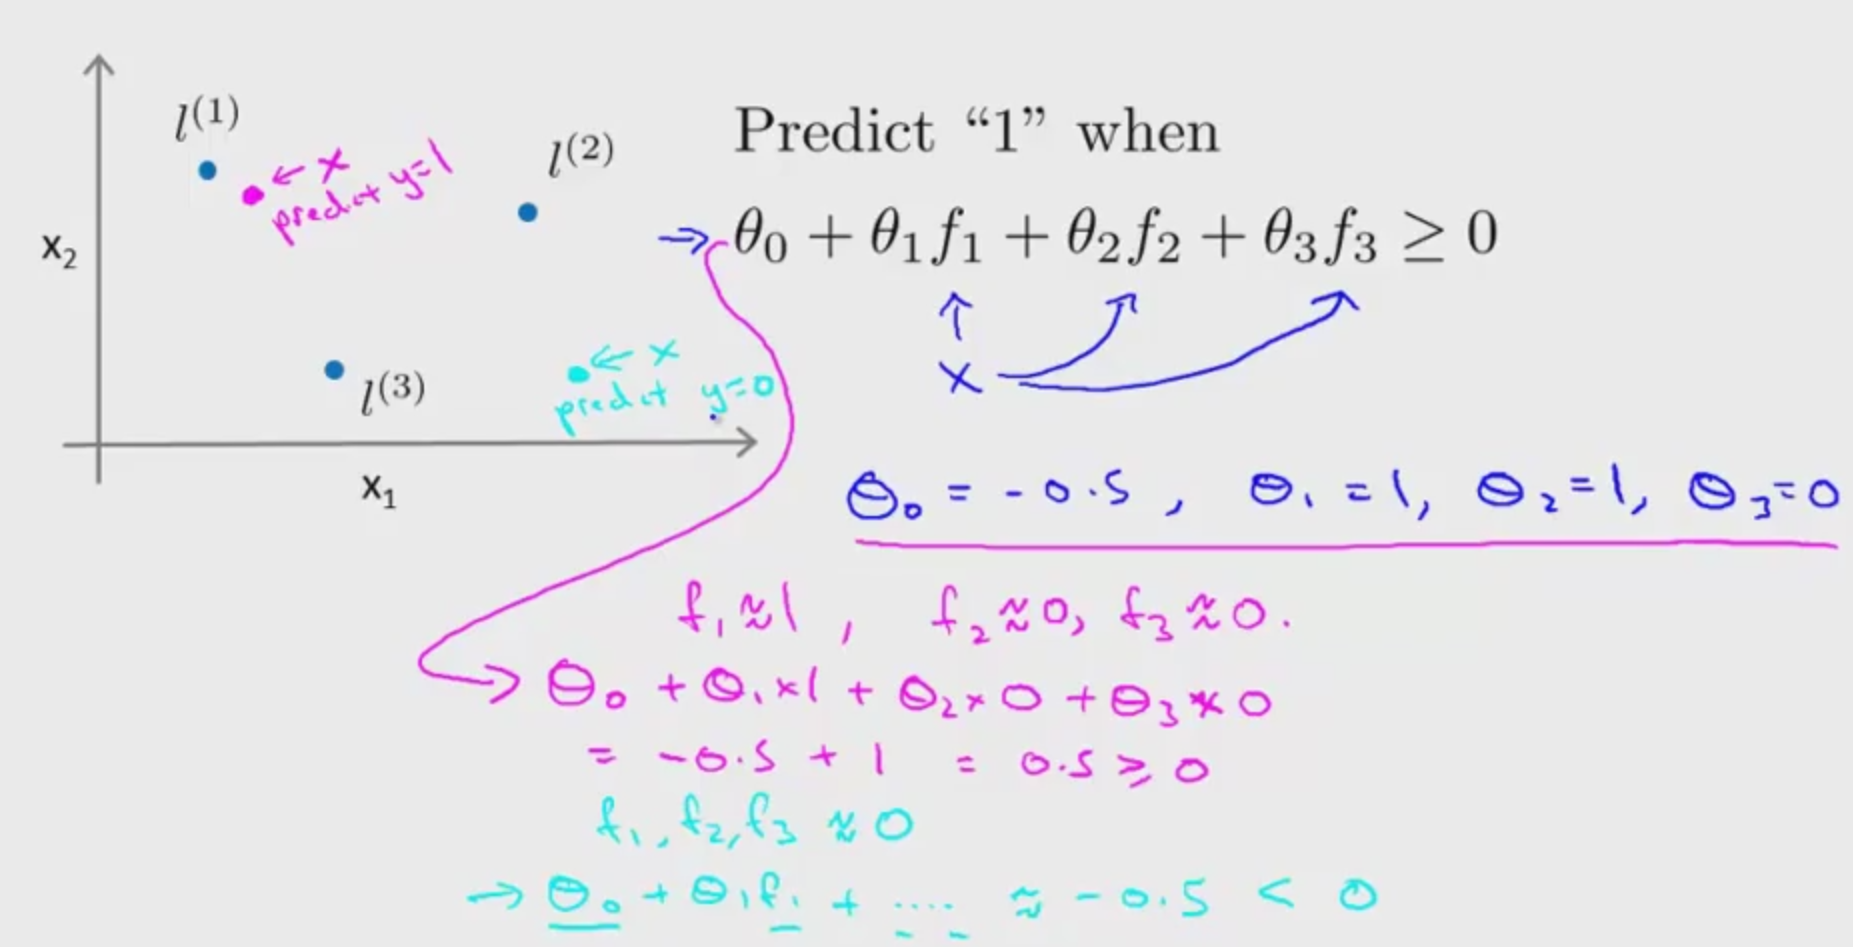 l^(1)
← x
predict y=1
l^(2)
x₂
← x
predict y=0
l^(3)
x₁
Predict “1” when
→ θ₀ + θ₁f₁ + θ₂f₂ + θ₃f₃ ≥ 0
x
θ₀ = -0.5, θ₁ = 1, θ₂ = 1, θ₃ = 0
f₁ ≈ 1, f₂ ≈ 0, f₃ ≈ 0.
θ₀ + θ₁×1 + θ₂×0 + θ₃×0
= -0.5 + 1 = 0.5 ≥ 0
f₁, f₂, f₃ ≈ 0
→ θ₀ + θ₁f₁ + .... ≈ -0.5 < 0